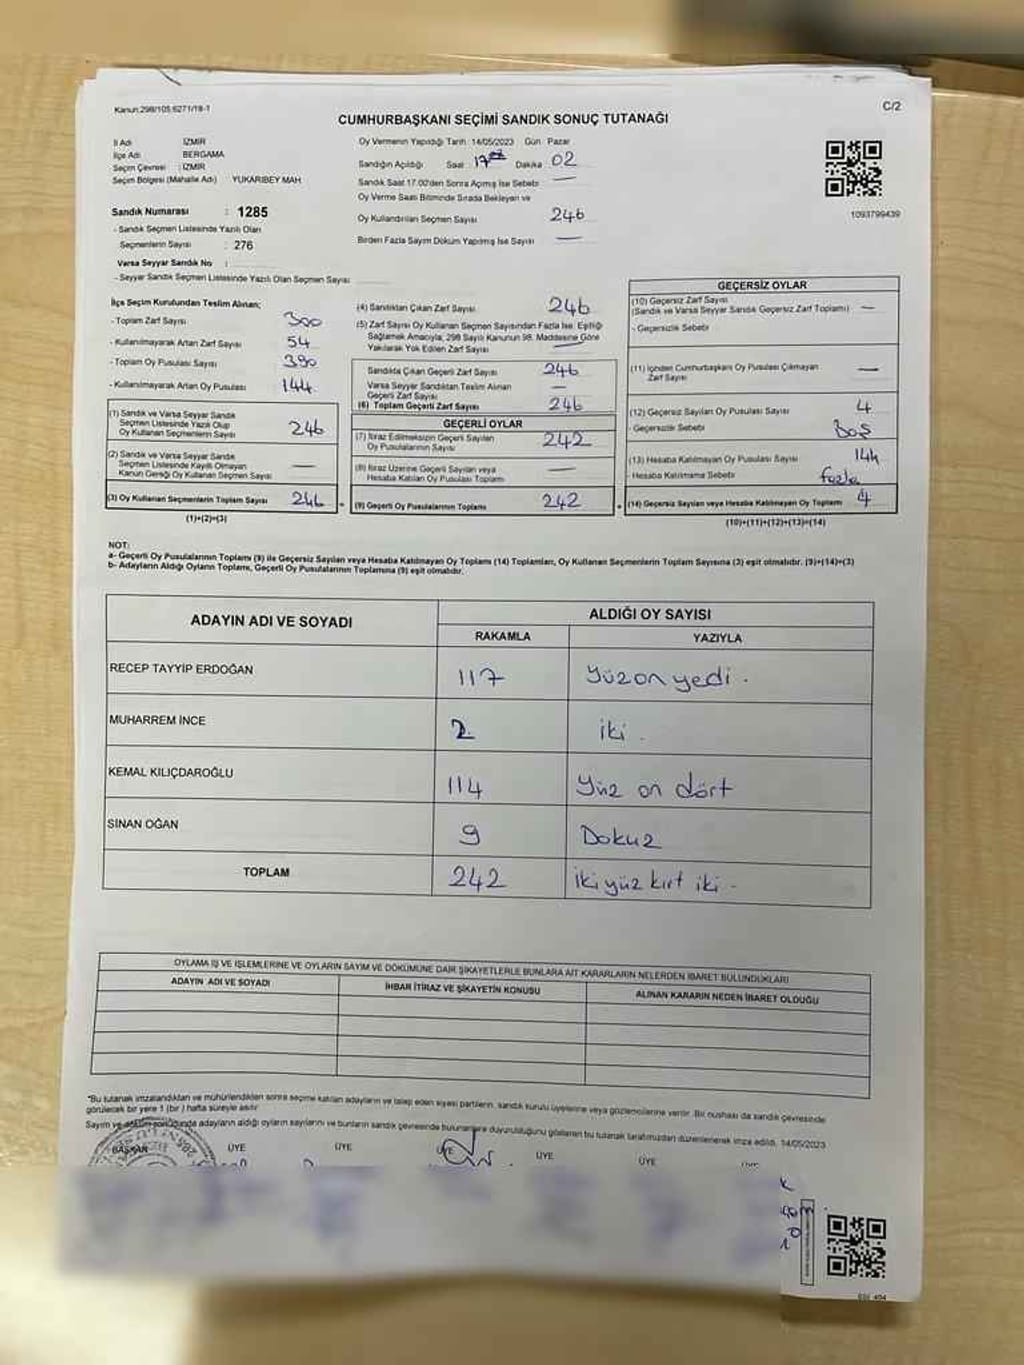 Kanun:298/105 6271/18-1
C/2
CUMHURBAŞKANI SEÇİMİ SANDIK SONUÇ TUTANAĞI
İl Adı : İZMİR
İlçe Adı : BERGAMA
Seçim Çevresi : İZMİR
Seçim Bölgesi (Mahalle Adı) YUKARIBEY MAH
Sandık Numarası : 1285
- Sandık Seçmen Listesinde Yazılı Olan
Seçmenlerin Sayısı : 276
Varsa Seyyar Sandık No :
- Seyyar Sandık Seçmen Listesinde Yazılı Olan Seçmen Sayısı
Oy Vermenin Yapıldığı Tarih : 14/05/2023 Gün : Pazar
Sandığın Açıldığı Saat : 17 Dakika : 02
Sandık Saat 17.00'den Sonra Açılmış İse Sebebi —
Oy Verme Saati Bitiminde Sırada Bekleyen ve
Oy Kullandırılan Seçmen Sayısı 246
Birden Fazla Sayım Döküm Yapılmış İse Sayısı —
1093799439
İlçe Seçim Kurulundan Teslim Alınan;
- Toplam Zarf Sayısı 300
- Kullanılmayarak Artan Zarf Sayısı 54
- Toplam Oy Pusulası Sayısı 390
- Kullanılmayarak Artan Oy Pusulası 144
(1) Sandık ve Varsa Seyyar Sandık
Seçmen Listesinde Yazılı Olup
Oy Kullanan Seçmenlerin Sayısı 246
(2) Sandık ve Varsa Seyyar Sandık
Seçmen Listesinde Kayıtlı Olmayan
Kanun Gereği Oy Kullanan Seçmen Sayısı —
(3) Oy Kullanan Seçmenlerin Toplam Sayısı 246
(1)+(2)=(3)
(4) Sandıktan Çıkan Zarf Sayısı 246
(5) Zarf Sayısı Oy Kullanan Seçmen Sayısından Fazla İse; Eşitliği
Sağlamak Amacıyla; 298 Sayılı Kanunun 98. Maddesine Göre
Yakılarak Yok Edilen Zarf Sayısı —
Sandıkta Çıkan Geçerli Zarf Sayısı 246
Varsa Seyyar Sandıktan Teslim Alınan
Geçerli Zarf Sayısı —
(6) Toplam Geçerli Zarf Sayısı 246
GEÇERLİ OYLAR
(7) İtiraz Edilmeksizin Geçerli Sayılan
Oy Pusulalarının Sayısı 242
(8) İtiraz Üzerine Geçerli Sayılan veya
Hesaba Katılan Oy Pusulası Toplamı —
(9) Geçerli Oy Pusulalarının Toplamı 242
GEÇERSİZ OYLAR
(10) Geçersiz Zarf Sayısı
(Sandık ve Varsa Seyyar Sandık Geçersiz Zarf Toplamı) —
- Geçersizlik Sebebi
(11) İçinden Cumhurbaşkanı Oy Pusulası Çıkmayan
Zarf Sayısı —
(12) Geçersiz Sayılan Oy Pusulası Sayısı 4
- Geçersizlik Sebebi Boş
(13) Hesaba Katılmayan Oy Pusulası Sayısı 144
- Hesaba Katılmama Sebebi fazla
(14) Geçersiz Sayılan veya Hesaba Katılmayan Oy Toplamı 4
(10)+(11)+(12)+(13)=(14)
NOT:
a- Geçerli Oy Pusulalarının Toplamı (9) ile Geçersiz Sayılan veya Hesaba Katılmayan Oy Toplamı (14) Toplamları, Oy Kullanan Seçmenlerin Toplam Sayısına (3) eşit olmalıdır. (9)+(14)=(3)
b- Adayların Aldığı Oyların Toplamı, Geçerli Oy Pusulalarının Toplamına (9) eşit olmalıdır.
ADAYIN ADI VE SOYADI
ALDIĞI OY SAYISI
RAKAMLA YAZIYLA
RECEP TAYYİP ERDOĞAN 117 Yüzon yedi .
MUHARREM İNCE 2 iki .
KEMAL KILIÇDAROĞLU 114 Yüz on dört
SİNAN OĞAN 9 Dokuz
TOPLAM 242 iki yüz kırt iki -
OYLAMA İŞ VE İŞLEMLERİNE VE OYLARIN SAYIM VE DÖKÜMÜNE DAİR ŞİKAYETLERLE BUNLARA AİT KARARLARIN NELERDEN İBARET BULUNDUKLARI
ADAYIN ADI VE SOYADI İHBAR İTİRAZ VE ŞİKAYETİN KONUSU ALINAN KARARIN NEDEN İBARET OLDUĞU
*Bu tutanak imzalandıktan ve mühürlendikten sonra seçime katılan adayların ve talep eden siyasi partilerin, sandık kurulu üyelerine veya gözlemcilerine verilir. Bir nüshası da sandık çevresinde
görülecek bir yere 1 (bir) hafta süreyle asılır
Sayım ve döküm sonucunda adayların aldığı oyların sayılarını ve bunların sandık çevresinde bulunanlara duyurulduğunu gösteren bu tutanak tarafımızdan düzenlenerek imza edildi. 14/05/2023
BAŞKAN ÜYE ÜYE ÜYE ÜYE ÜYE